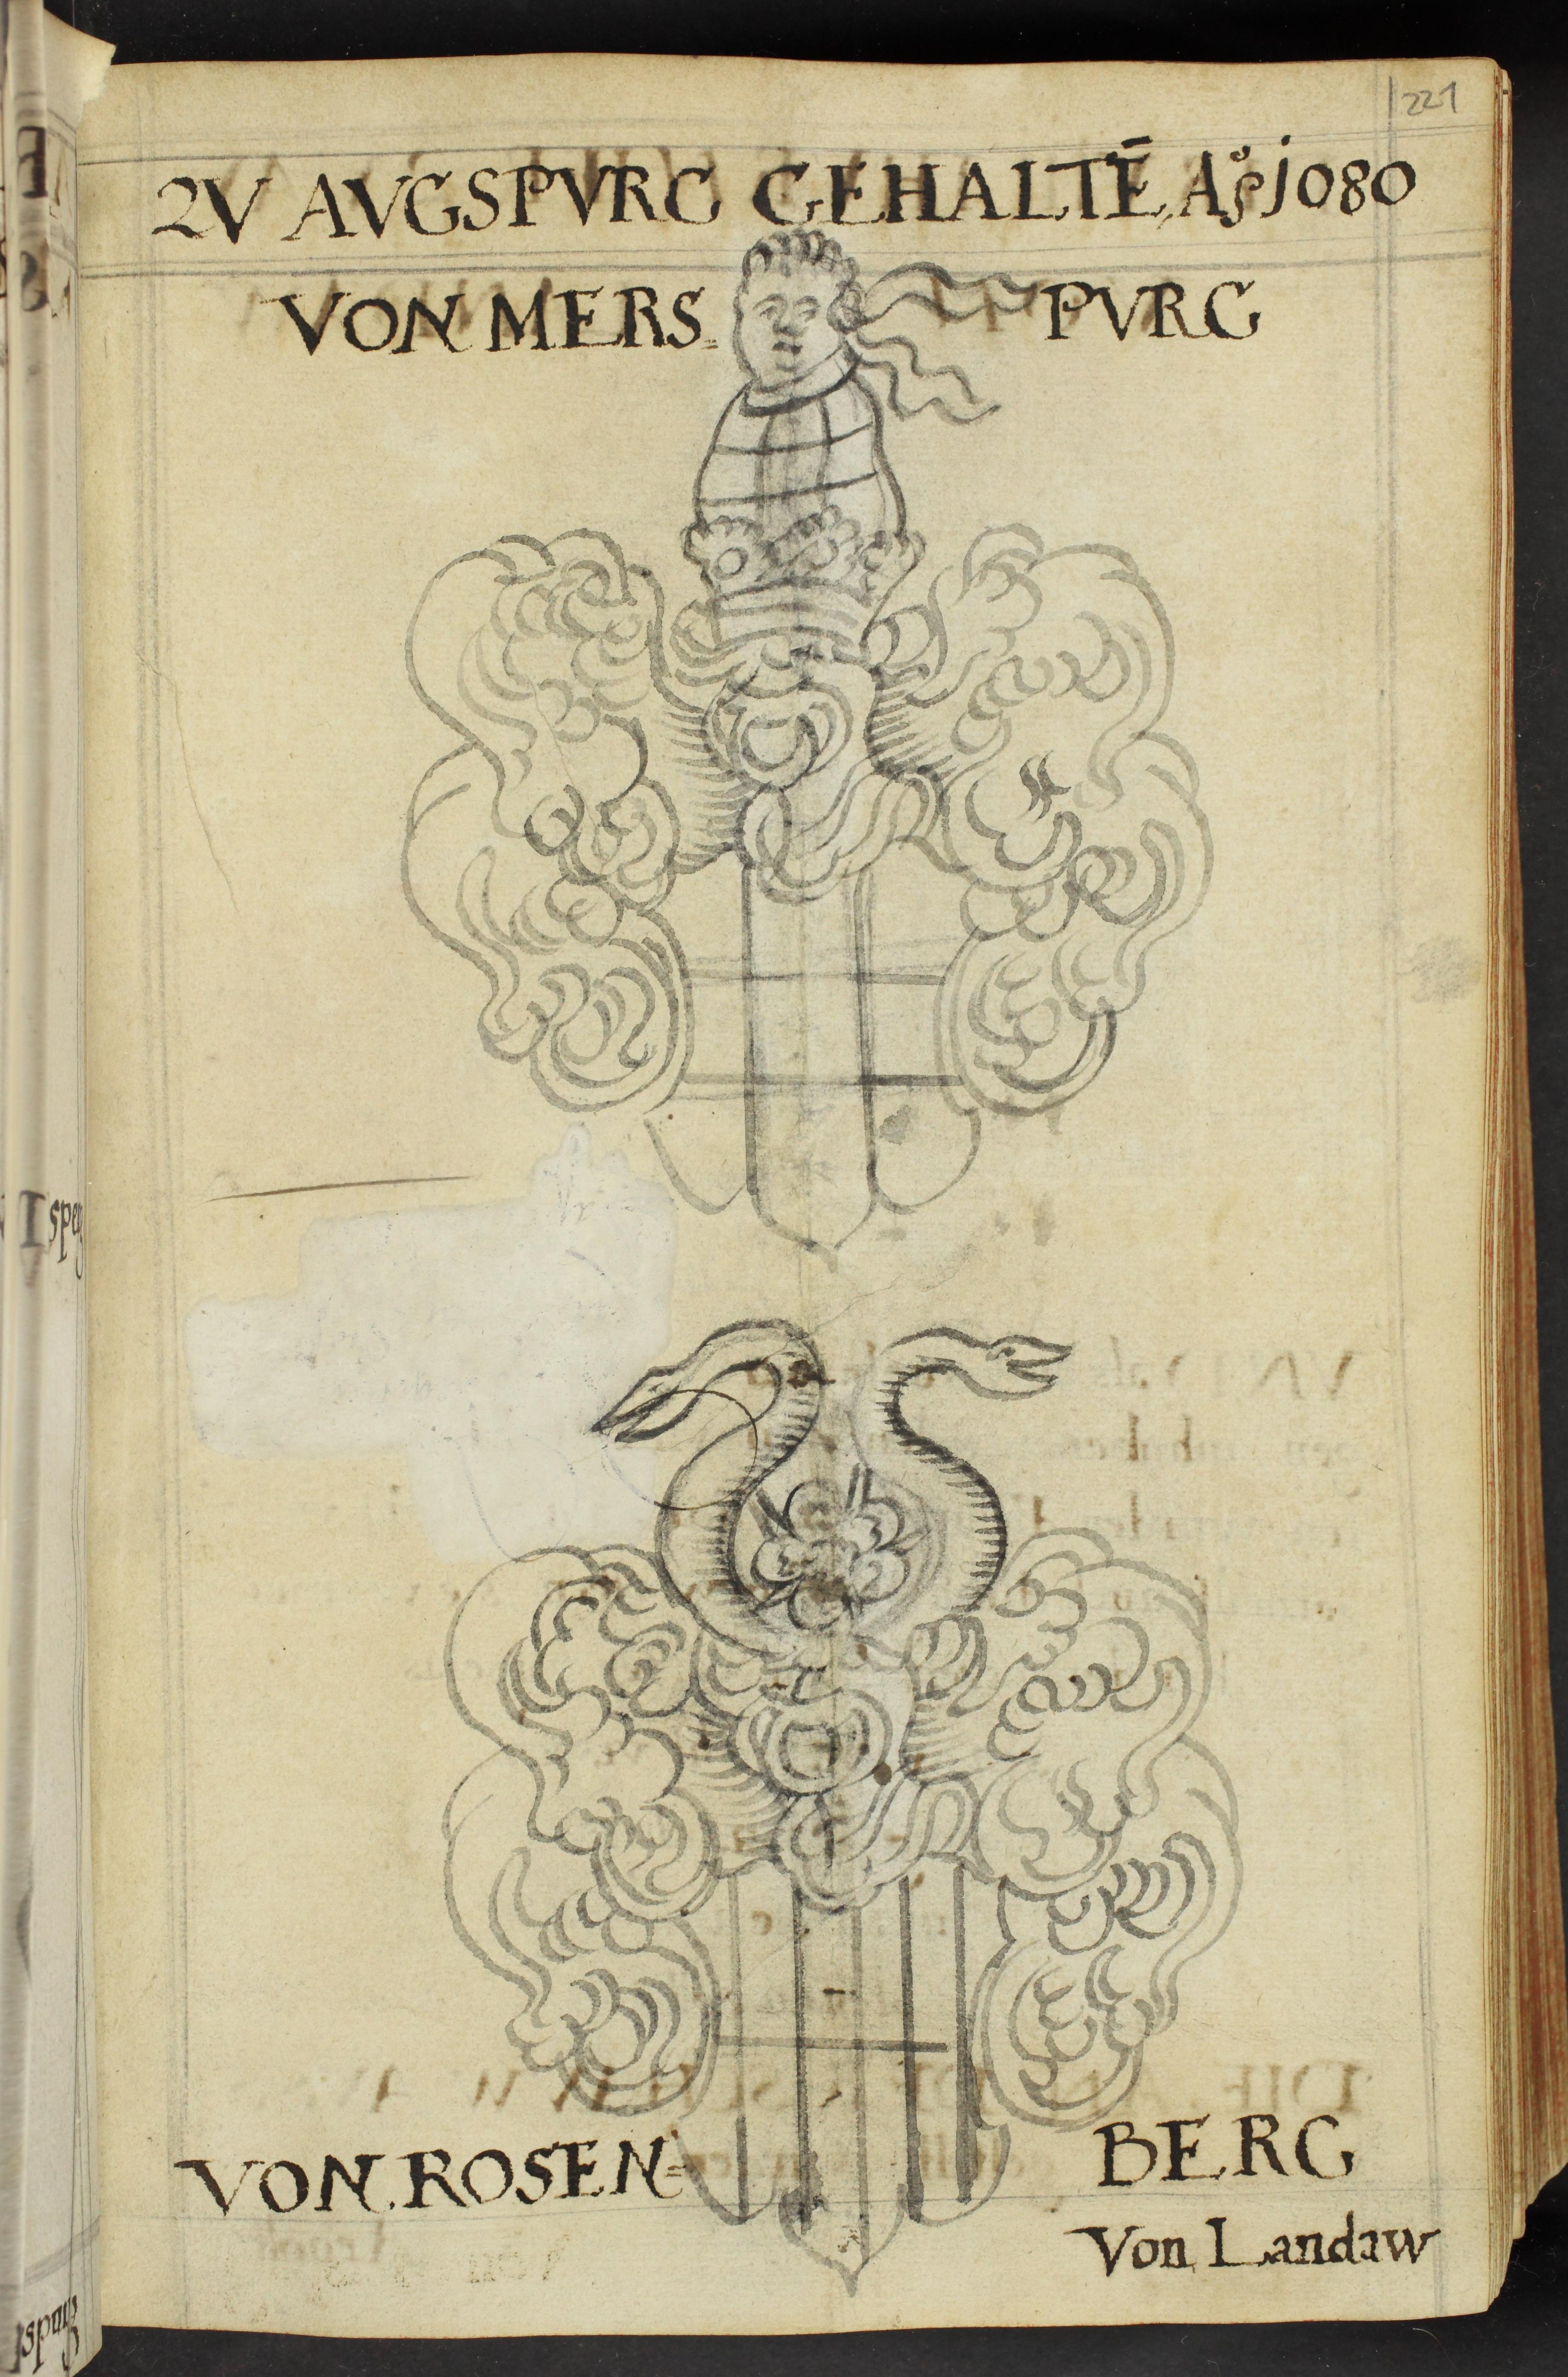 221
ZV AVGSPVRG GEHALTĒ Aº j080
VON MERS= PVRG
VON ROSEN= BERG
Von Landaw